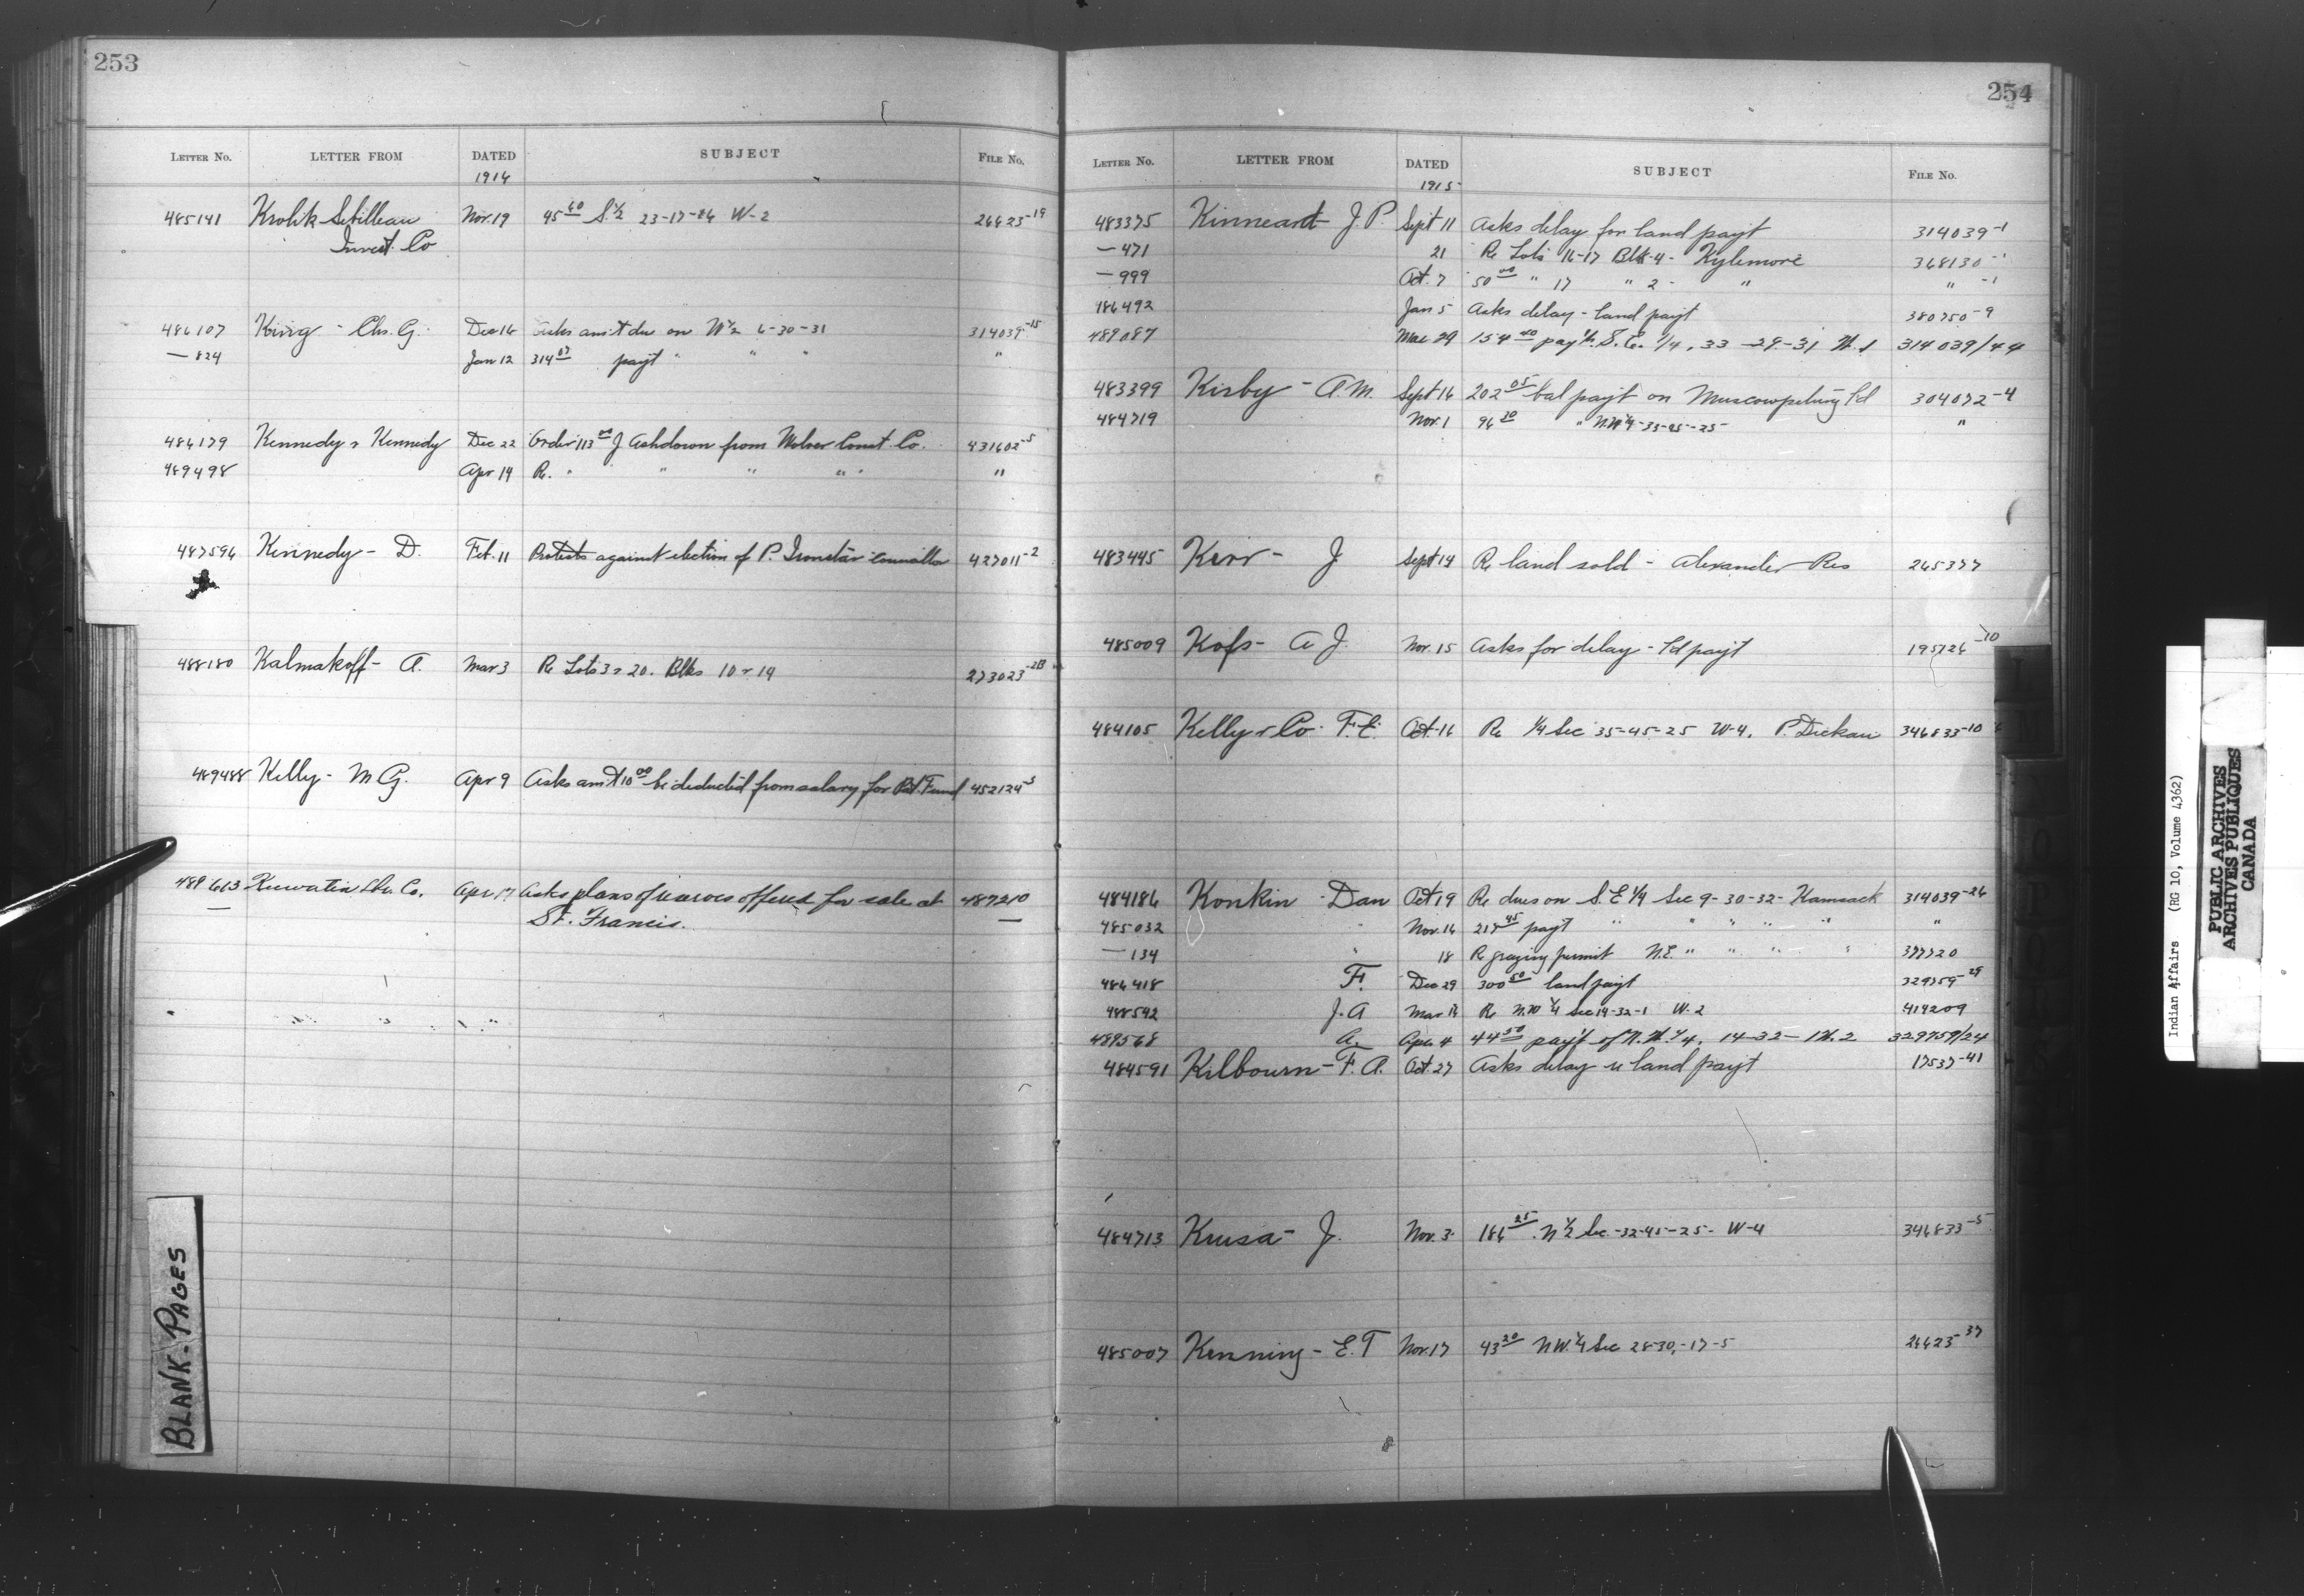 253
LETTER No. LETTER FROM DATED SUBJECT FILE No.
1916
485141 Krolik Sebilleau Nov. 19 95 60 S. 1/2 23-17-26 W-2 26623-19
Invest. Co
486107 King - Chs. G. Dec 16 Asks am't due on W 1/2 6-30-31 314039-15
— 824 Jan 12 314 07 payt " " " "
486179 Kennedy & Kennedy Dec 22 Order 113 00 J Ashdown from Const. Co. 431602-5
489498 Apr 14 Re. " " " " "
487596 Kennedy - D. Feb. 11 Protests against election of P. Ironstar councillor 427011-2
488180 Kalmakoff - A. Mar 3 Re Lots 3 & 20. Blks 10 & 19 273023-2B
489488 Kelly - M G. Apr 9 Asks am't 10 00 be deducted from salary for Pat Fund 452124-3
489663 Keewatin Lbr. Co. Apr 17 Asks plans of reserves offered for sale at 487210
— St. Francis. —
BLANK-PAGES
254
LETTER No. LETTER FROM DATED SUBJECT FILE No.
1915
483375 Kinneard J. P. Sept 11 Asks delay for land payt 314039-1
— 471 21 Re Lots 16-17 Blk-4- Kylemore 368130-1
— 999 Oct. 7 50 00 " 17 " 2 - " " -1
486492 Jan 5 Asks delay - land payt 380750-9
489087 Mar 29 154 40 pay't. S. E. 1/4, 33-29-31 W. 1 314039/44
483399 Kirby - A. M. Sept 16 202 05 bal payt on Muscowpetung Ld 304072-4
484719 Nov. 1 96 30 " N.W 1/4-35-45-25- "
483445 Kerr - J Sept 14 Re land sold - Alexander Res 265377
485009 Kofs - A J. Nov. 15 Asks for delay - Ld payt 195726-10
484105 Kelly & Co. F. E. Oct. 16 Re 1/4 Sec 35-45-25 W-4. P. Dickau 346833-10
484186 Konkin - Dan Oct 19 Re dues on S. E 1/4 Sec 9-30-32- Kamsack 314039-26
485032 " Nov. 16 217 45 payt " " " " " "
— 134 " 18 Re grazing permit N.E. " " " " 377720
486418 F. Dec 29 300 50 land payt 329759-29
488592 J. A Mar 16 Re N.W 1/4 Sec 14-32-1 W-2 414209
489568 A. Apr. 4 44 50 pay't of N. W. 1/4, 14-32-1 W. 2 329759/24
484591 Kilbourn - F. A. Oct. 27 Asks delay re land payt 17537-41
484713 Krusa - J. Nov. 3 186 25 N 1/2 Sec.-32-45-25- W-4 346833-5
485007 Kenning - E. T Nov. 17 43 20 N W. 1/4 Sec 28-30,-17-5 26623-37
Indian Affairs (RG 10, Volume 4362)
PUBLIC ARCHIVES
ARCHIVES PUBLIQUES
CANADA